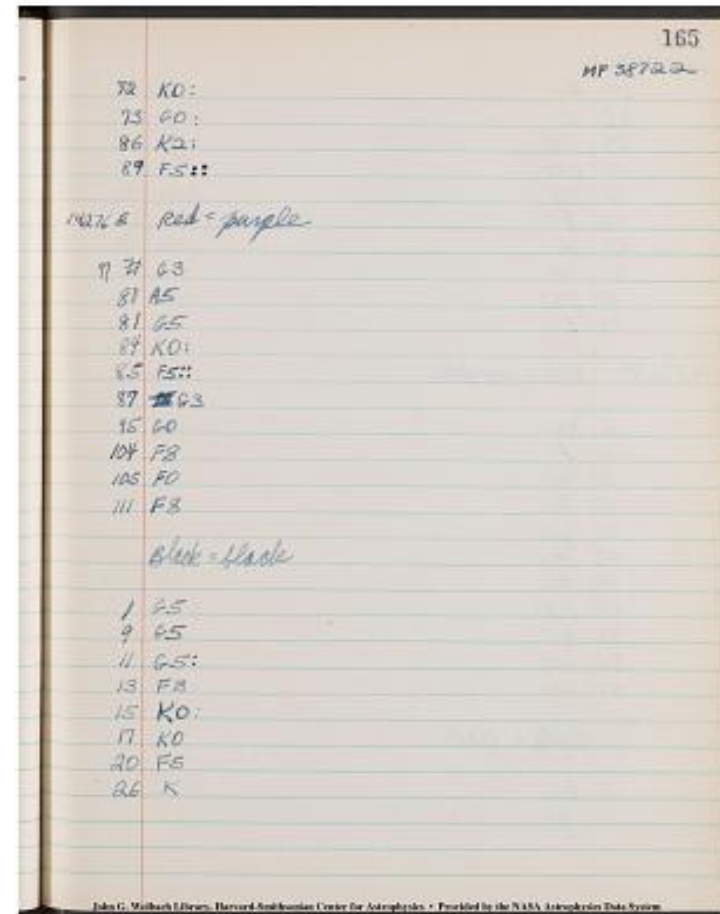 165
MF 38722
72 K0:
73 G0:
86 K2:
89 F5::
Red = purple
G3
81 A5
81 G5
84 K0:
85 F5::
87 G3
95 G0
104 F8
105 F0
111 F8
Black = black
1 G5
9 G5
11 G5:
13 F8
15 K0:
17 K0
20 F5
26 K
John G. Wolbach Library, Harvard-Smithsonian Center for Astrophysics • Provided by the NASA Astrophysics Data System